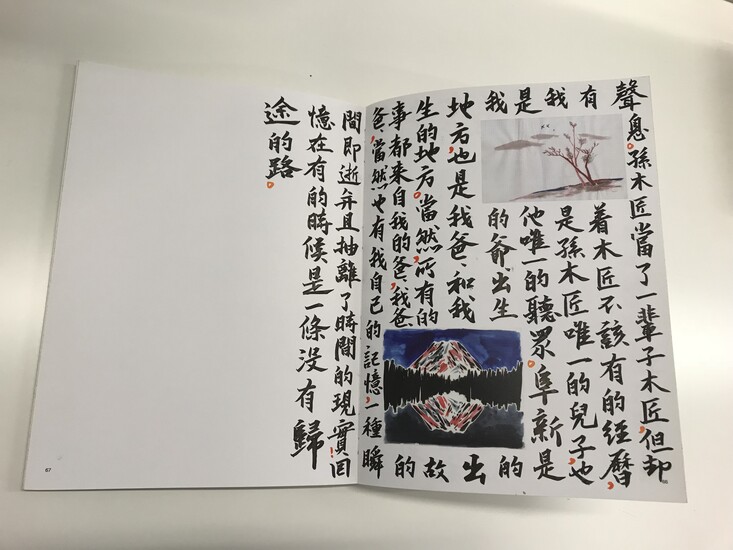 聲息,孫木匠當了一輩子木匠,但却
有着木匠不該有的經曆,
我是孫木匠唯一的兒子也
是他唯一的聽眾。阜新是
我的爺、出生的
地方,也是我爸、和我出
生的地方。當然,所有的故
事都來自我的爸,我爸的
爸,當然也有我自己的記憶,一種瞬
間即逝并且抽離了時間的現實!回
憶在有的時候是一條没有歸
途的路。
87